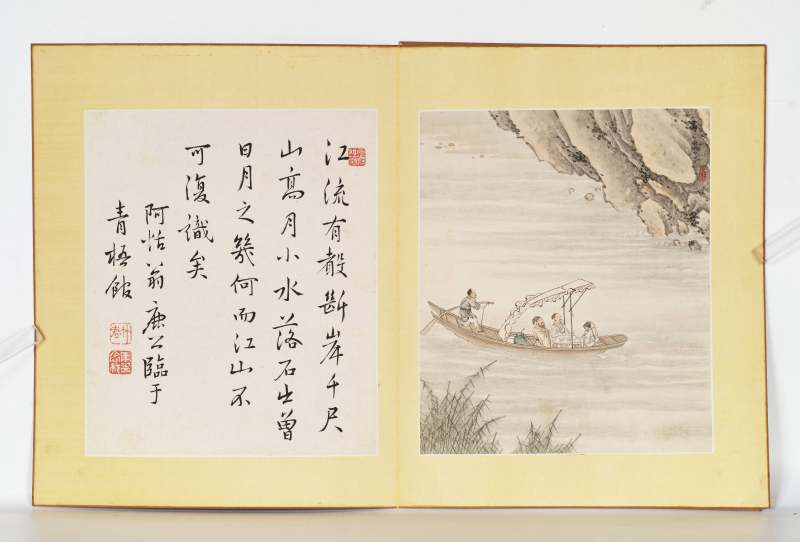 江流有聲斷岸千尺
山高月小水落石出曾
日月之幾何而江山不
可復識矣
阿恬翁康公臨于
青梧館